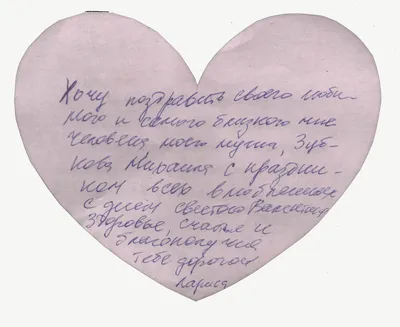 Хочу поздравить своего люби-
мого и самого близкого мне
человека моего мужа, Зуб-
кова Михаила с праздни-
ком всех влюбленных
с днем святого Валентина
Здоровье, счастья и
благополучия
тебе дорогой
Лариса